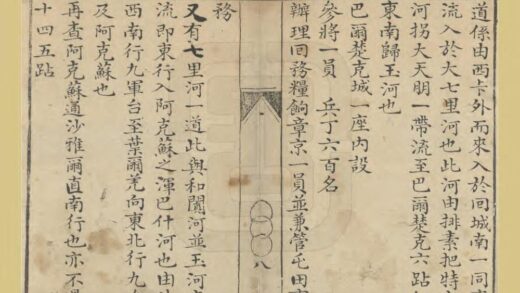 道係由西卡外而來入於回城南一同
流入於大七里河也此河由排素把特
河拐大天明一帶流至巴爾楚克六站
東南歸玉河也
巴爾楚克城一座內設
參將一員 兵丁六百名
辦理回務糧餉章京一員並兼管屯田
八
務
又有七里河一道此與和闐河並玉河
流即東行入阿克蘇之渾巴什河也由
西南行九軍台至葉爾羌向東北行九
及阿克蘇也
再查阿克蘇道沙雅爾直南行也亦不
十四五站